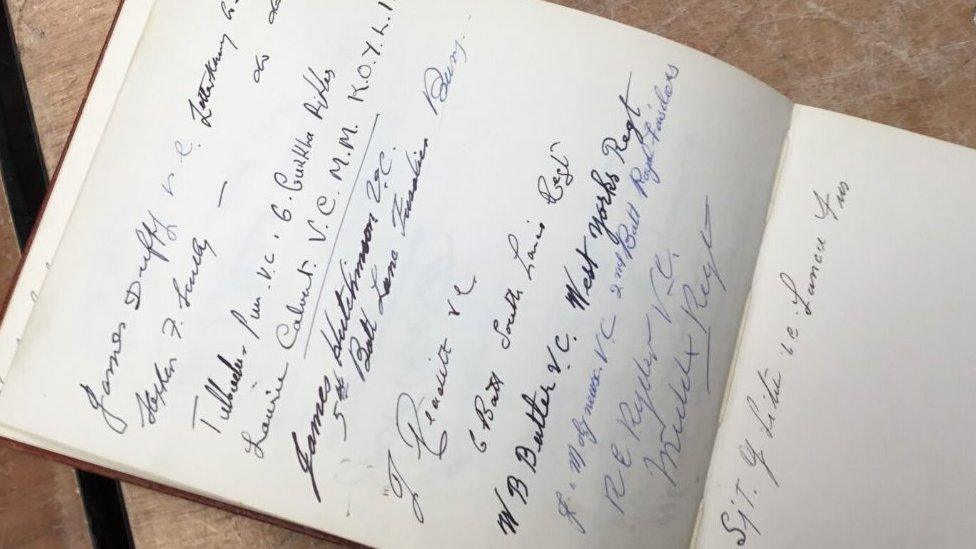 James Duffy V.C. Letterkenny
Stephen F. Scully — do do
Tulbadur Pun. V.C. 6. Gurkha Rifles
Laurie Calvert. V.C. M.M. K.O.Y.L.I
James Hutchinson V.C.
5th Batt Lanc Fusiliers Bury.
J Readitt VC.
6 Batt South Lancs Regt
W B Butler V.C. West Yorks Regt
F. Molyneux. VC 2nd Batt Royal Fusiliers
R E Ryder V.C.
Middlx Regt
Sjt. V.C. Lancs Fus